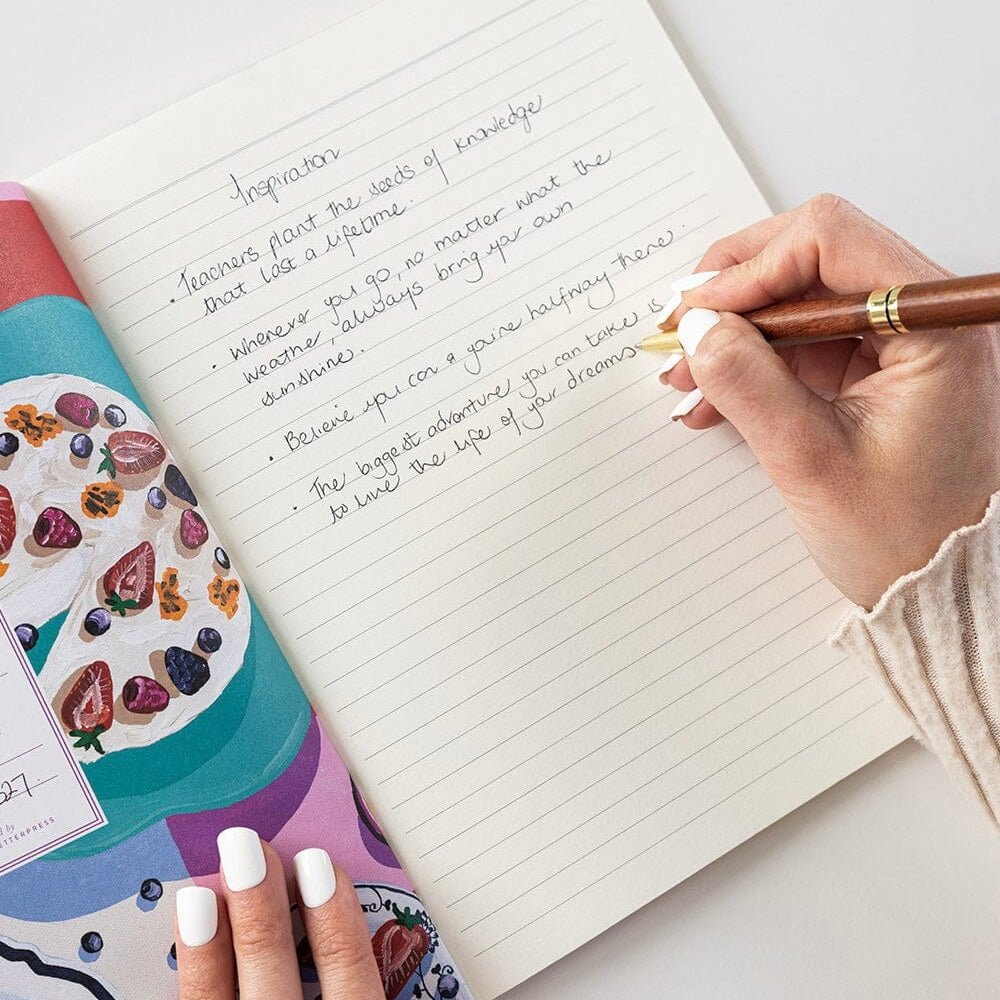 Inspiration
• Teachers plant the seeds of knowledge
that last a lifetime.
• Wherever you go, no matter what the
weather, always bring your own
sunshine.
• Believe you can & you're halfway there.
• The biggest adventure you can take is
to live the life of your dreams
27.
by